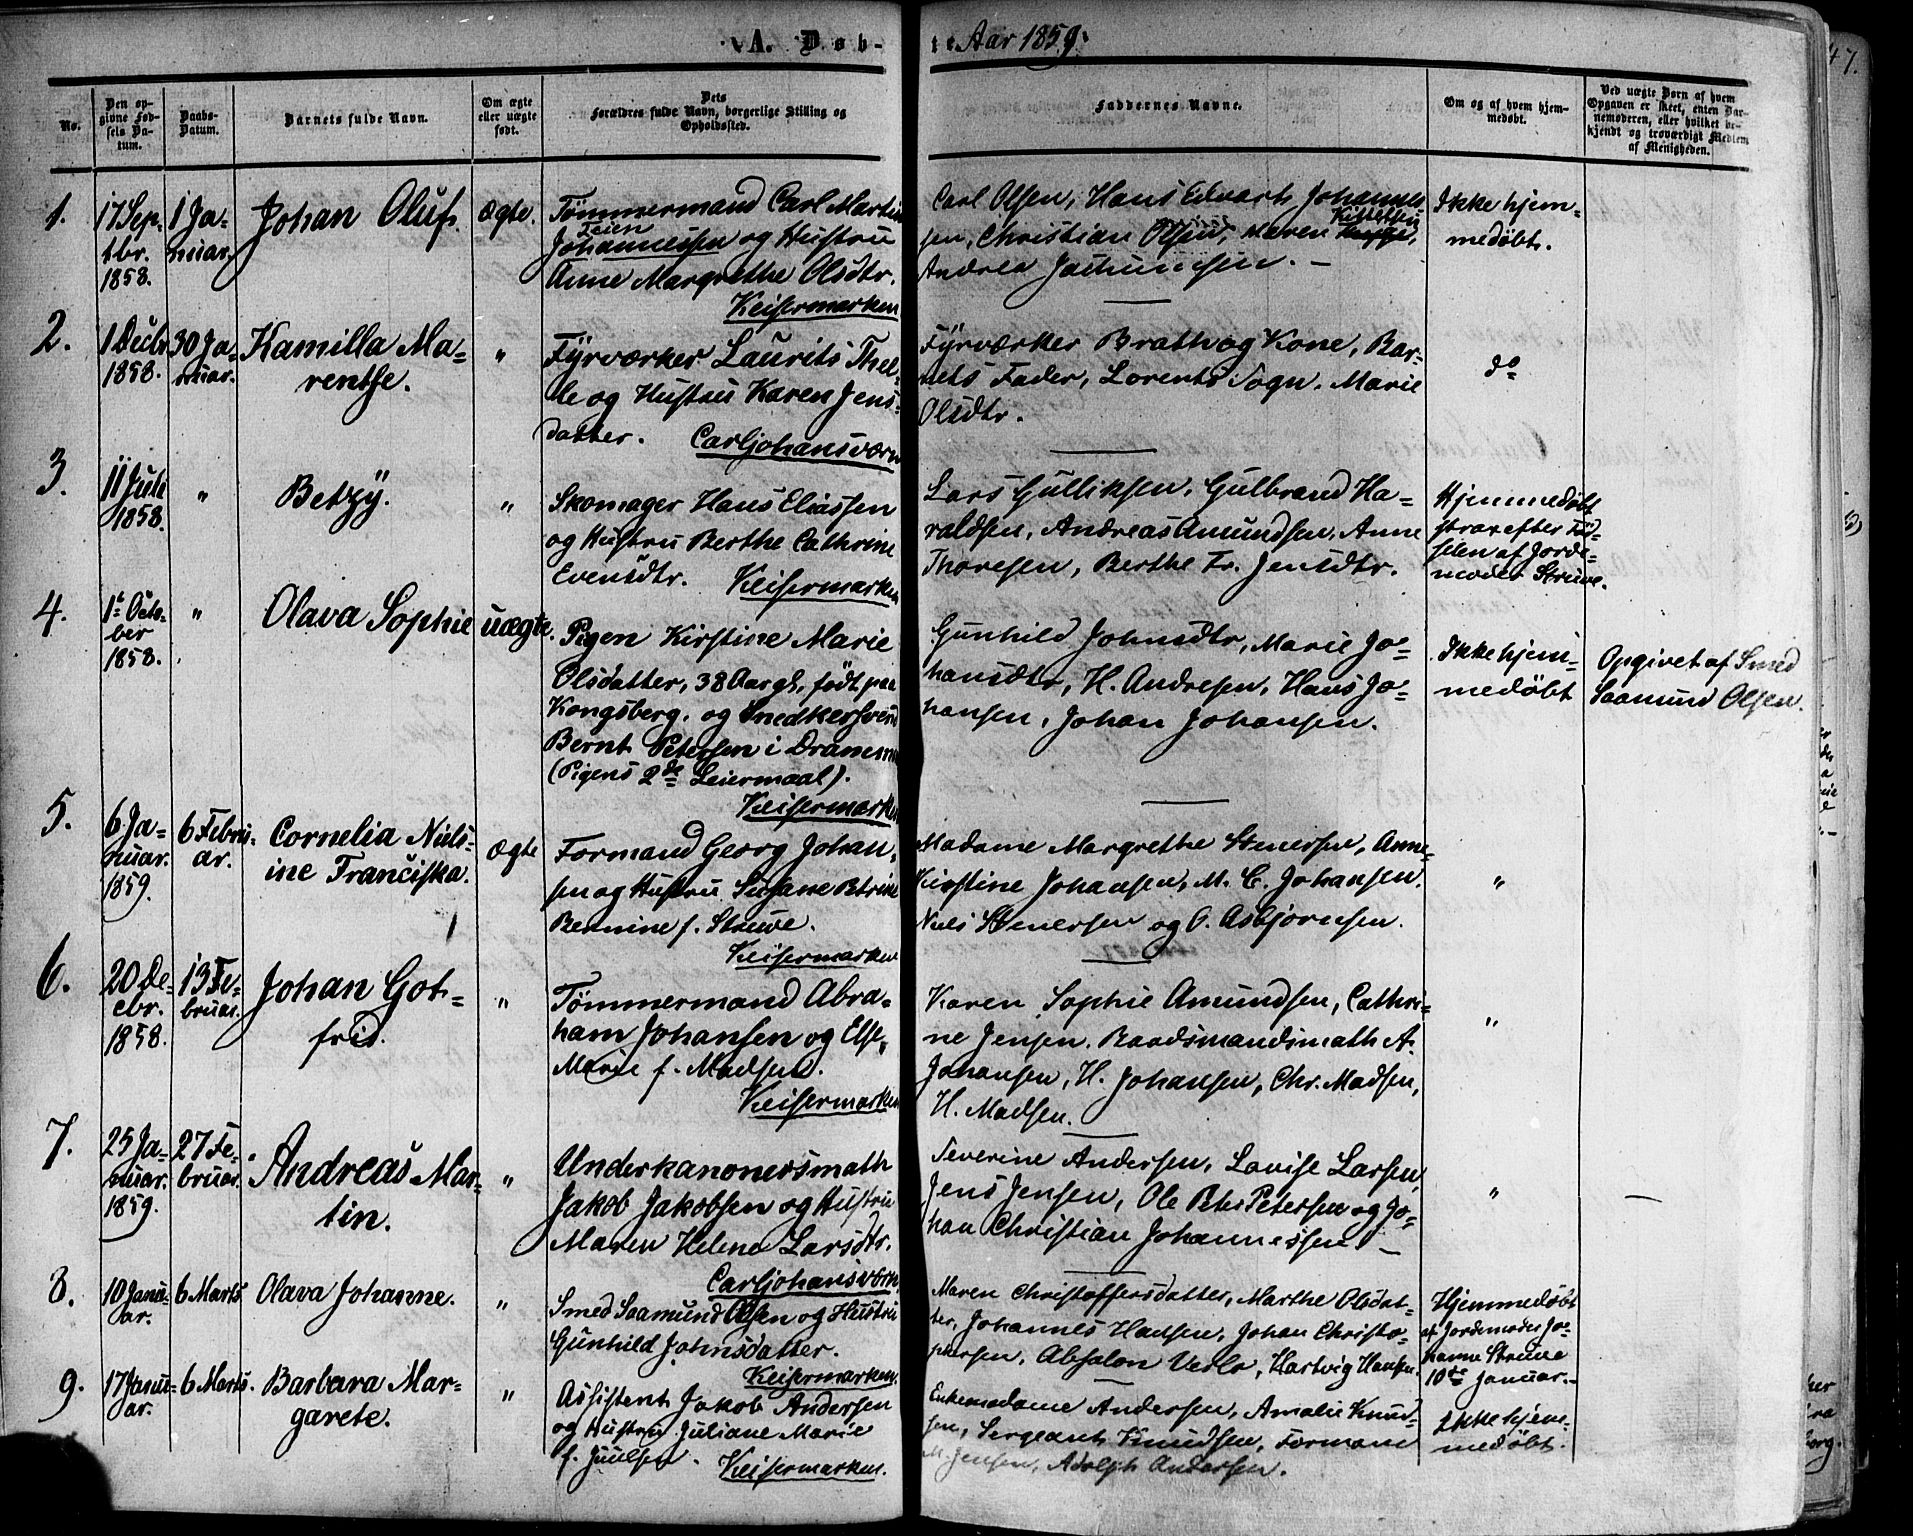 A. Døb-
Aar 1859.
No.
Den op-
givne Fød-
sels Da-
tum.
Daabs-
Datum.
Barnets fulde Navn.
Om ægte
eller uægte
født.
Dets
Forældres fulde Navn, borgerlige Stilling og
Opholdssted.
Faddernes Navne.
Om og af hvem hjem-
medøbt.
Ved uægte Børn af hvem
Opgaven er skeet, enten Bar-
nemoderen, eller hvilket be-
kjendt og troværdigt Medlem
af Menigheden.
47.
1.
17 Sep-
tbr.
1858.
1 Ja-
nuar.
Johan Oluf.
Ægte.
Tømmermand Carl Martin
Johannessen og Hustru
Anne Margrethe Olsdtr.
Keisermarken
Carl Olsen, Hans Edvart Johannes
sen, Christian Olsen, Maren Kittelsen,
Andrea Jachumsen. —
Ikke hjem-
medøbt.
2.
1 Decbr
1858.
30 Ja-
nuar.
Kamilla Ma-
renthe.
"
Fyrværker Laurits Thel-
le og Hustru Karen Jens-
datter.
Carljohansværn
Fyrværker Brath og Kone, Bar-
nets Fader, Lorents Sogn. Marie
Olsdtr.
do
3.
11 Juli
1858.
"
Betzÿ.
"
Skomager Hans Eliassen
og Hustru Berthe Cathrine
Evensdtr.
Keisermarken
Lars Gulliksen, Gulbrand Ha-
raldsen, Andreas Amundsen, Anne
Thoresen, Berthe Fr. Jensdtr.
Hjemmedøbt
strax efter Fød-
selen af Jorde-
moder Struve.
4.
1te Octo-
ber
1858.
"
Olava Sophie
uægte.
Pigen Kirstine Marie
Olsdatter, 38 Aar gl, født paa
Kongsberg. og Snedkersvend
Bernt Petersen i Drammen
(Pigens 2de Leiermaal).
Keisermarken
Gunhild Johnsdtr, Marie Jo-
hansdtr, H. Andresen, Hans Jo-
hansen, Johan Johansen.
Ikke hjem-
medøbt
Opgivet af Smed
Saamund Olsen.
5.
6 Ja-
nuar.
1859.
6 Febru-
ar.
Cornelia Niels-
ine Franciska.
Ægte
Formand Georg Johan-
sen og Hustru Susane Petrine
Bernine f. Struve.
Keisermarken
Madame Margrethe Stenersen, Anne
Kirstine Johansen, M. C. Johansen.
Niels Stenersen og O. Asbjørnsen.
"
6.
20 De-
cbr.
1858.
13 Fe-
bruar.
Johan Got-
frid.
"
Tømmermand Abra-
ham Johansen og Else
Marie f. Madsen.
Keisermarken
Karen Sophie Amundsen, Cathri-
ne Jensen. Baadsmandsmath A.
Johansen, H. Johansen, Chr. Madsen,
H. Madsen.
"
7.
25 Ja-
nuar.
1859.
27 Fe-
bruar.
Andreas Mar-
tin.
"
Underkanonersmath
Jakob Jakobsen og Hustru
Maren Helene Larsdtr.
Carljohansværn
Severine Andersen, Lovise Larsen,
Jens Jensen, Ole Peter Petersen og Jo-
han Christian Johannessen. —
"
—
8.
10 Janu-
ar.
6 Marts
Olava Johanne.
"
Smed Saamund Olsen og Hustru
Gunhild Johnsdatter.
Keisermarken.
Maren Christoffersdatter, Marthe Olsdat-
ter, Johannes Hansen, Johan Christo-
phersen, Absalon Vedlo, Hartvig Hansen.
Hjemmedøbt
af Jordemoder Jo-
hanne Struve
10de Januar.-
9.
17 Janu-
ar.
6 Marts.
Barbara Mar-
garete.
"
Assistent Jakob Andersen
og Hustru Juliane Marie
f. Juulsen.
Keisermarken.
Enkemadame Andersen, Amalie Knud-
sen, Sergeant Knudsen, Formand
M. Jensen, Adolph Andersen.
Ikke hjem-
medøbt.